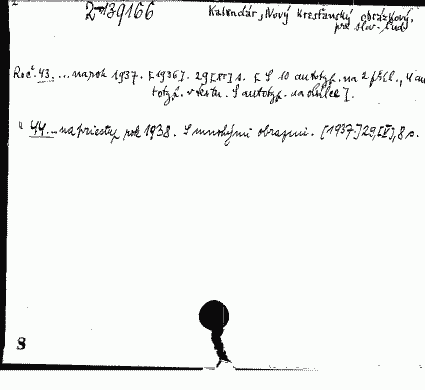 2-139166
Kalendár, Nový kresťanský obrázkový,
pre slov. ľud
Roč. 43. ... na rok 1937. [1936]. 29 [XX] s. [S 10 autotyp. na 2 príl., 4 au
totyp. v textu. S autotyp. na obálce].
" 44. ... na priestup. rok 1938. S mnohými obrazmi. [1937.] 29, [V], 8 s.
8